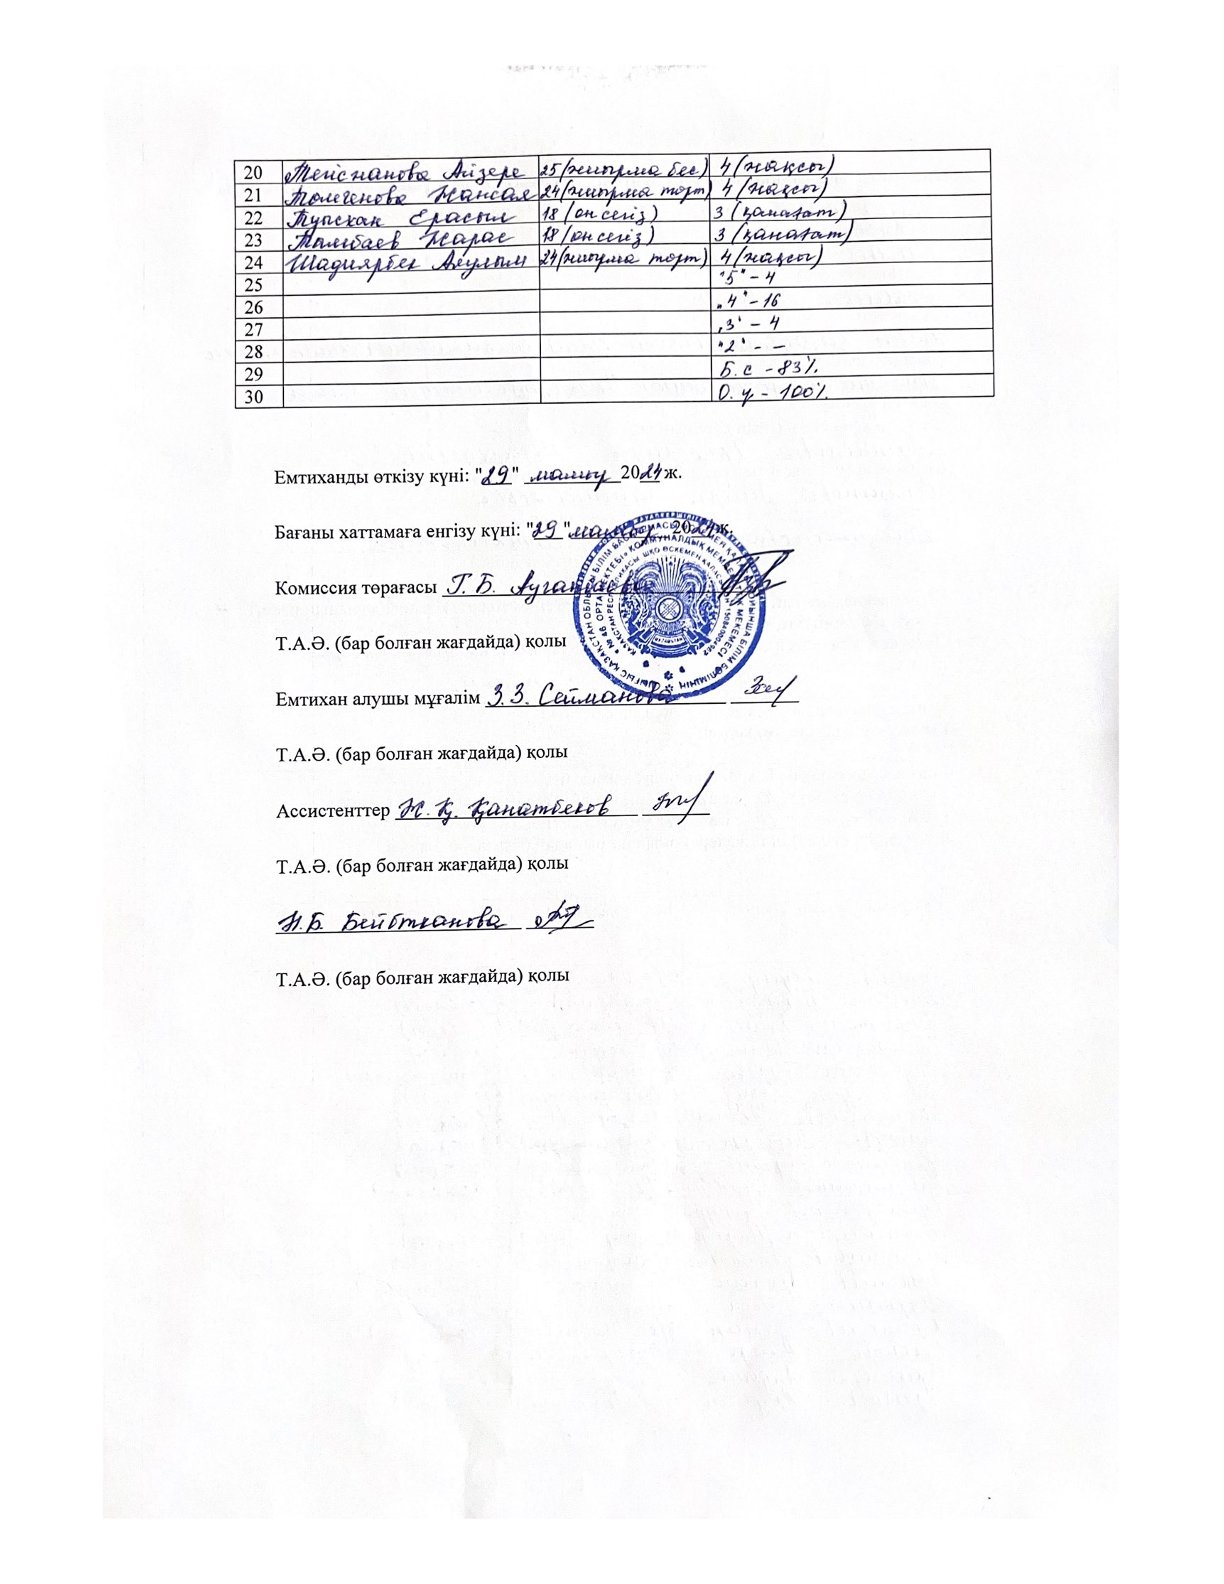 20 Тейспанова Айзере 25 (жиырма бес) 4 (жақсы)
21 Толегенова Жансая 24 (жиырма төрт) 4 (жақсы)
22 Тусхан Ерасыл 18 (он сегіз) 3 (қанағат)
23 Толыбаев Нарас 18 (он сегіз) 3 (қанағат)
24 Шадиярбек Аяулым 24 (жиырма төрт) 4 (жақсы)
25 "5" - 4
26 "4" - 16
27 "3" - 4
28 "2" - –
29 Б.с - 83%
30 О.у - 100%
Емтиханды өткізу күні: "29" мамыр 2024 ж.
Бағаны хаттамаға енгізу күні: "29" мамыр 2024 ж.
Комиссия төрағасы Г.Б.
Т.А.Ә. (бар болған жағдайда) қолы
Емтихан алушы мұғалім З.З. Сейманова
Т.А.Ә. (бар болған жағдайда) қолы
Ассистенттер Ж.Қ. Қанатбеков
Т.А.Ә. (бар болған жағдайда) қолы
Н.Б.
Т.А.Ә. (бар болған жағдайда) қолы